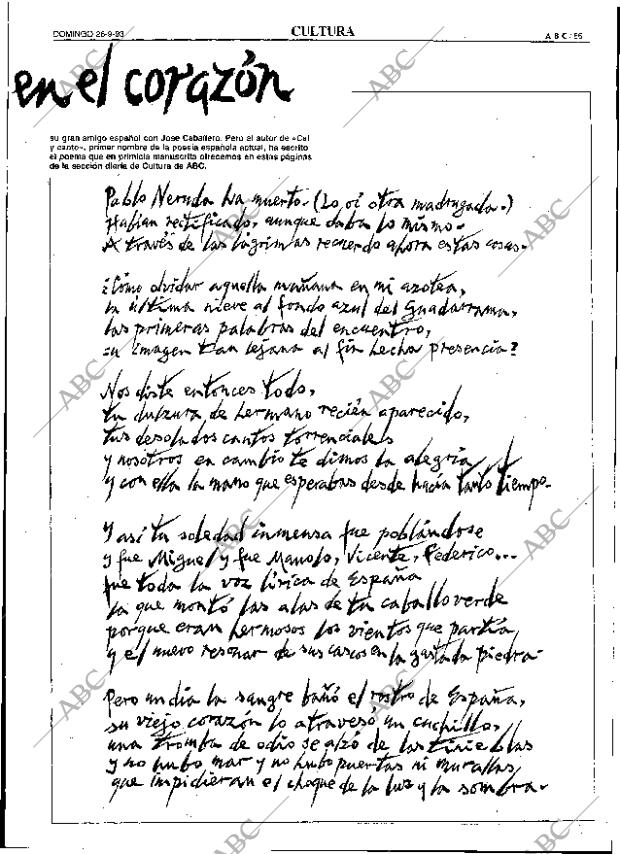 DOMINGO 26-9-93
CULTURA
A B C / 55
en el corazón
su gran amigo español con José Caballero. Pero el autor de «Cal
y canto», primer nombre de la poesía española actual, ha escrito
el poema que en primicia manuscrita ofrecemos en estas páginas
de la sección diaria de Cultura de ABC.
Pablo Neruda ha muerto. (Lo oí otra madrugada.)
Habían rectificado, aunque daba lo mismo.
A través de las lágrimas recuerdo ahora estas cosas.
¿Cómo olvidar aquella mañana en mi azotea,
la última nieve al fondo azul del Guadarrama,
las primeras palabras del encuentro,
su imagen tan lejana al fin hecha presencia?
Nos diste entonces todo,
tu dulzura de hermano recién aparecido,
tus desolados cantos torrenciales
y nosotros en cambio te dimos la alegría
y con ella la mano que esperabas desde hacía tanto tiempo.
Y así tu soledad inmensa fue poblándose
y fue Miguel y fue Manolo, Vicente, Federico...
fue toda la voz lírica de España
la que montó las alas de tu caballo verde
porque eran hermosos los vientos que partía,
y el nuevo resonar de sus cascos en la gastada piedra.
Pero un día la sangre bañó el rostro de España,
su viejo corazón lo atravesó un cuchillo,
una tromba de odio se alzó de las tinieblas
y no hubo mar y no hubo puertas ni murallas,
que impidieran el choque de la luz y la sombra.